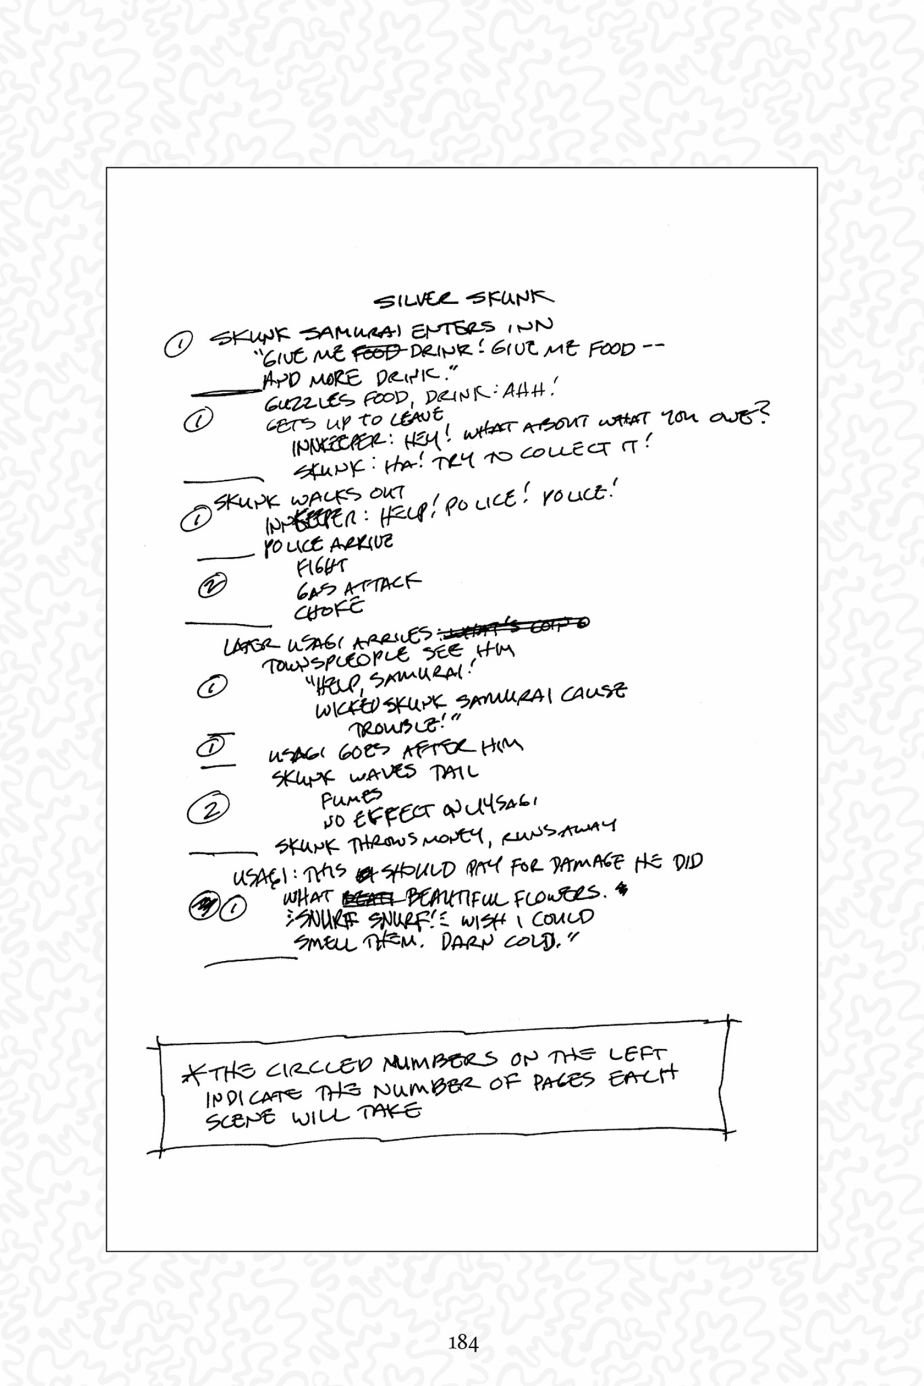 SILVER SKUNK
① SKUNK SAMURAI ENTERS INN
"GIVE ME FOOD DRINK! GIVE ME FOOD --
AND MORE DRINK."
GUZZLES FOOD, DRINK: AHH!
① GETS UP TO LEAVE
INNKEEPER: HEY! WHAT ABOUT WHAT YOU OWE?
SKUNK: HA! TRY TO COLLECT IT!
SKUNK WALKS OUT
① INNKEEPER: HELP! POLICE! POLICE!
POLICE ARRIVE
FIGHT
② GAS ATTACK
CHOKE
LATER USAGI ARRIVES:
TOWNSPLEOPLE SEE HIM
① "HELP, SAMURAI!
WICKED SKUNK SAMURAI CAUSE
TROUBLE!"
① USAGI GOES AFTER HIM
SKUNK WAVES TAIL
② FUMES
NO EFFECT ON USAGI
SKUNK THROWS MONEY, RUNS AWAY
USAGI: THIS SHOULD PAY FOR DAMAGE HE DID
① WHAT BEAUTIFUL FLOWERS.
SNURF SNURF! WISH I COULD
SMELL THEM. DARN COLD."
*THE CIRCLED NUMBERS ON THE LEFT
INDICATE THE NUMBER OF PAGES EACH
SCENE WILL TAKE
184